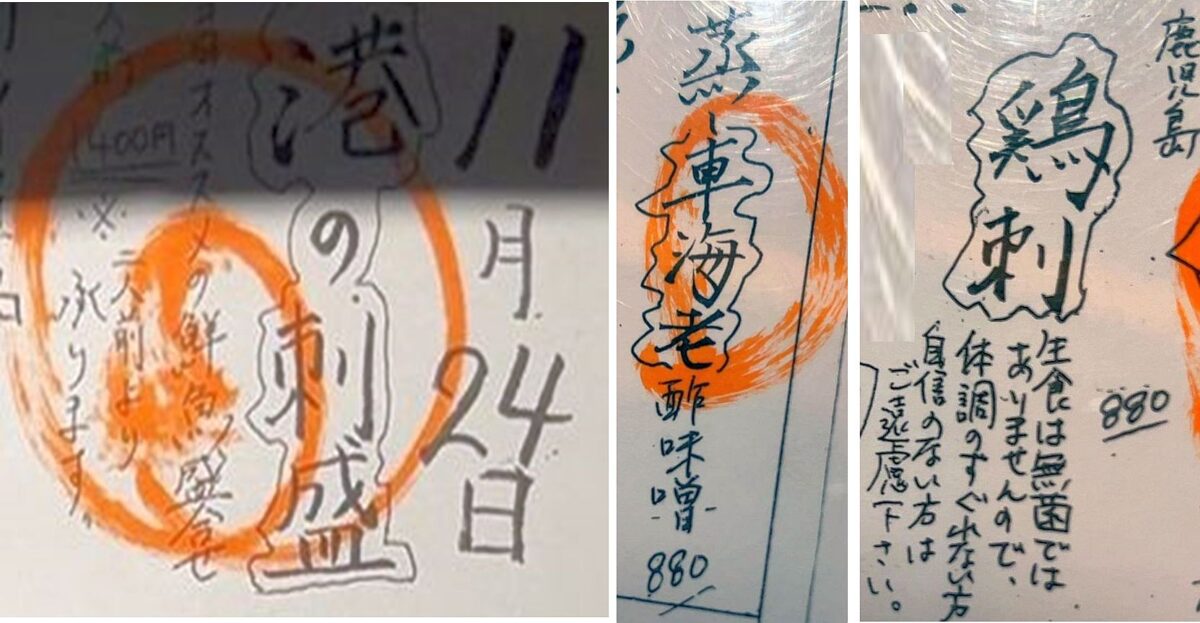 11月24日
港の刺盛
オススメの鮮魚盛合せ
1400円
※二人前より
承ります。
蒸車海老酢味噌
880
鹿児島
鶏刺
880
生食は無菌では
ありませんので、
体調のすぐれない方
自信のない方は
ご遠慮下さい。